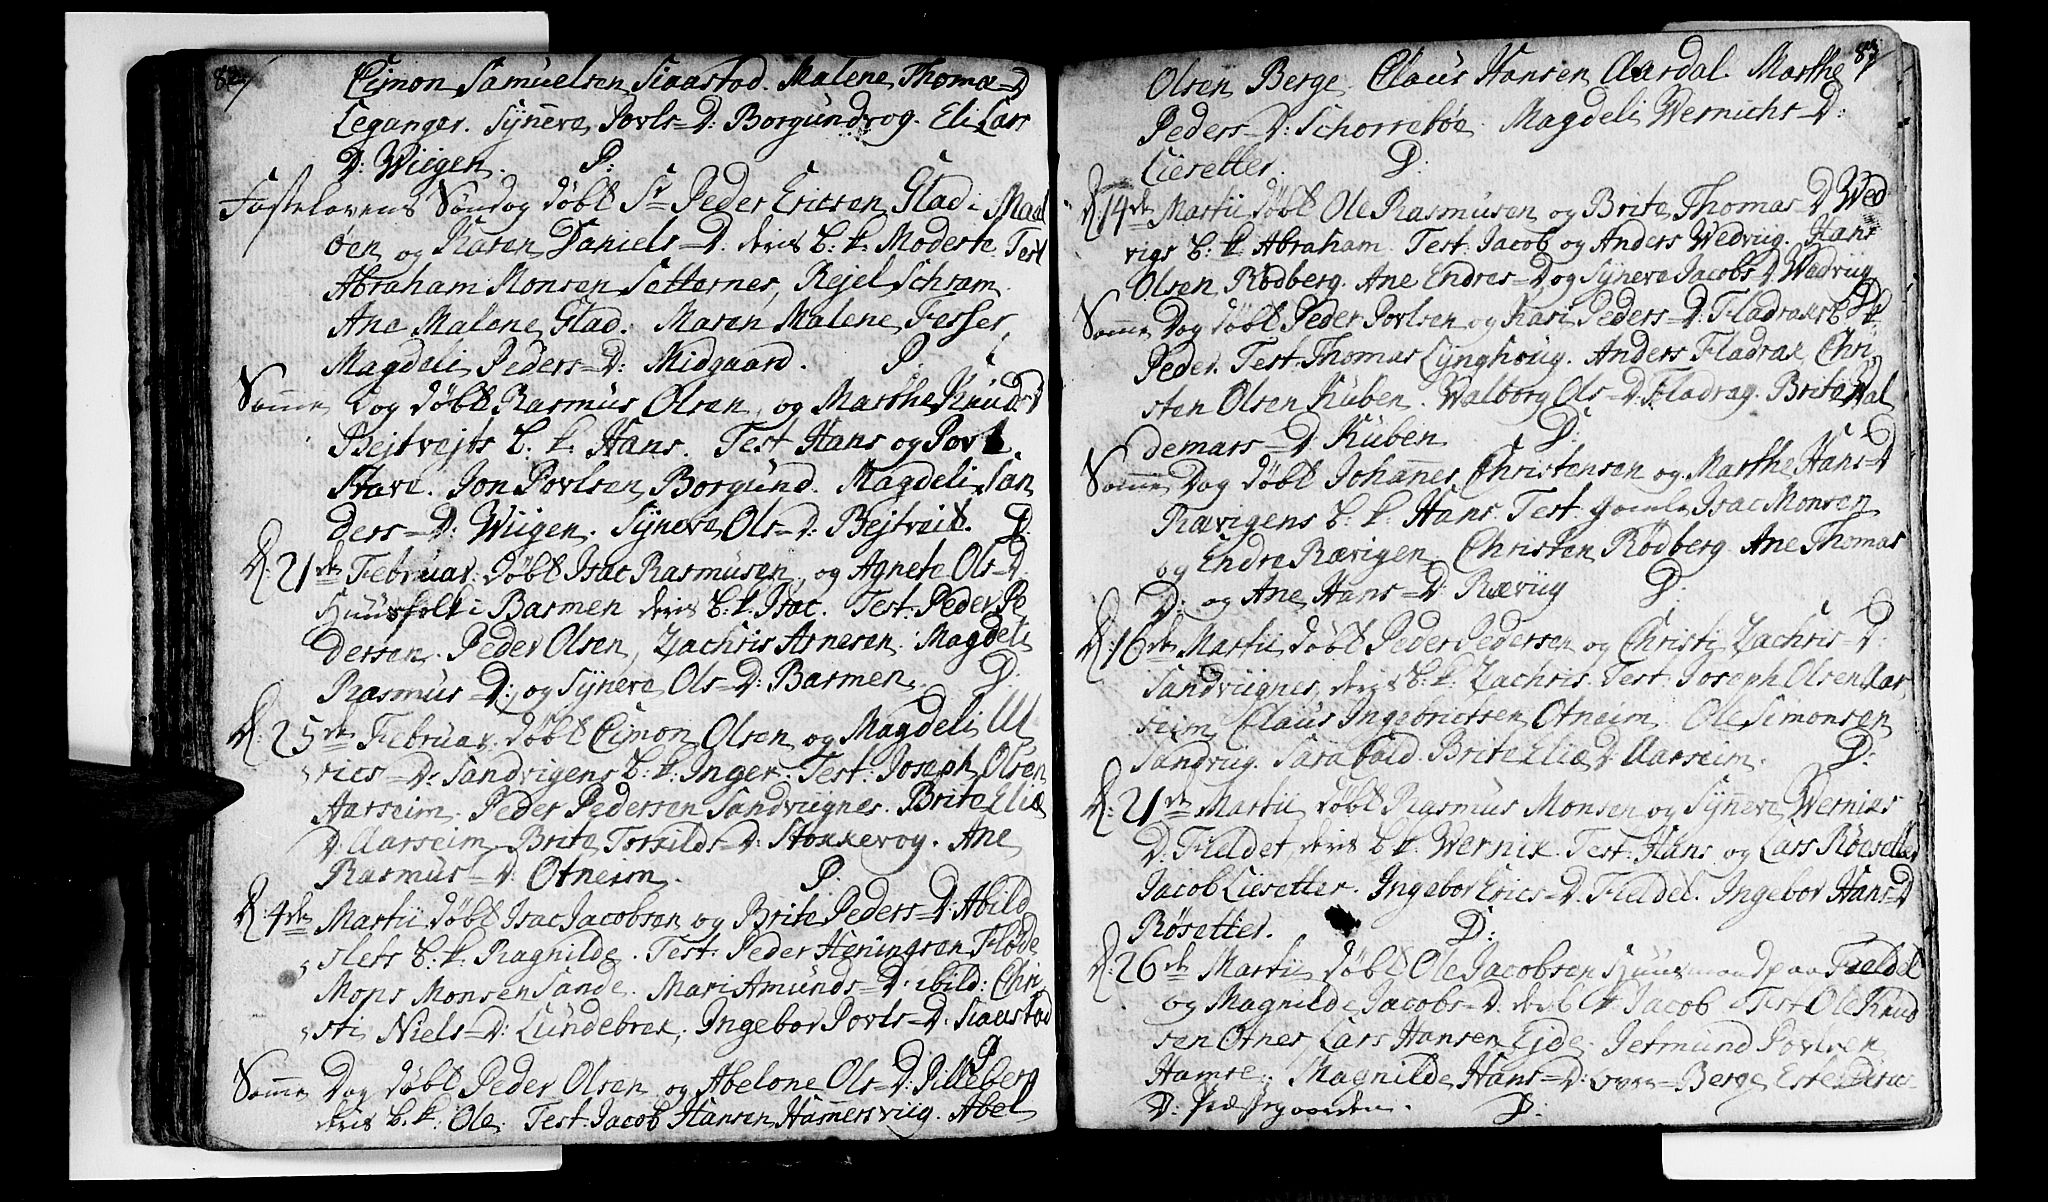 82
Cimon Samuelsen Siaastad. Malene Thomæ=D
Leganger. Synneve Povls=D: Borgundvog. Eli Lars
D: Wiigen. P:
Fastelavens Søndag døbt Sr Peder Ericsen Glad i Maal
øen og Karen Daniels=D. deris b. k. Modeste. Test
Abraham Monsen Setternes, Rejel Schram.
Ane Malene Glad. Maren Malene Fesser,
Magdeli Peders=D: Midgaard. P
Samme Dag døbt Rasmus Olsen, og Marthe Knuds D
Bejtvejts b. k. Hans. Test Hans og Povl
Stave. Jon Povlsen Borgund. Magdeli San
ders=D: Wiigen. Synneve Ols=D: Bejtveit. D:
D: 21de Februar: døbt Isac Rasmusen, og Agnete Ols=D
Huusfolk i Barmen deris b. k. Isac. Test. Peder Pe
dersen. Peder Olsen, Zachris Arnesen. Magdeli
Rasmus=D: og Synneve Ols=D: Barmen. D.
D: 25de Februar. døbt Cimon Olsen og Magdeli Ul
rics=D: Sandvigens b. k. Inger. Test: Joseph Olsen
Aarseim. Peder Pedersen Sandviignes. Brite Eliæ
D. Aarseim. Brite Torkilds=D: Stokkevog. Ane
Rasmus=D: Otneim. P.
D: 4de Martii døbt Isac Jacobsen og Brite Peders=D: Abild
slets b. k. Ragnilde. Test. Peder Heningsen Fløde
Mons Monsen Sande. Mari Amunds=D: ibild: Chri
sti Niels=D: Lundebrek, Ingebor Povls=D. Siaastad
P
Samme Dag døbt Peder Olsen og Abelone Ols=D: Pilleberg
deris b. k. Ole. Test. Jacob Hansen Hamersviig. Abel
83
Olsen Berge. Claus Hansen Aardal. Marthe
Peders=D: Schorrebøe. Magdeli Wernichs=D:
Liesetter. D:
D. 14de Martii døbt Ole Rasmusen og Brite Thomas=D Wed
vigs b. k. Abraham. Test. Jacob og Anders Wedvug. Hans
Olsen Rødberg. Ane Endres=D og Synneve Jacobs D. Wedviig
D.
Samme Dag døbt Peder Povlsen og Kari Peders=D: Fladraks b. k.
Peder. Test. Thomas Lynghoug. Anders Fladrak, Chri
sten Olsen Kuben. Walborg Ols=D. Fladrag. Brite Wal
demars=D. Kuben. D:
Samme Dag døbt Johannes Christensen og Marthe Hans=D
Rævigens b. k. Hans Test. gamle Isac Monsen
og Endre Rævigen. Christen Rødberg. Ane Thomas
D: og Ane Hans=D: Ræviig D.
D: 16de Martii døbt Peder Pedersen og Christi Zachris=D.
Sandviignes, deris b. k. Zachris. Test. Joseph Olsen Aar
seim. Claus Ingebrictsen Otneim. Ole Simonsen
Sandvug. Sara Bald. Brite Eliæ D Aarseim. D:
D: 21de Martii døbt Rasmus Monsen og Synneve Werniks
D. Fieldet, deris b. k. Wernik. Test. Hans og Lars Røesetter
Jacob Liesetter. Ingebor Erics=D. Fieldet. Ingebor Hans=D
Røsetter. D:
D: 26de Martii døbt Ole Jacobsen Huusmand paa Fieldet
og Magnilde Jacobs=D. deris b. k. Jacob. Test Ole Knud
sen Otnes, Lars Hansen Ejde. Jetmund Povlsen
Hamre. Magnilde Hans=D: Berge
D: Præstgaarden. D: